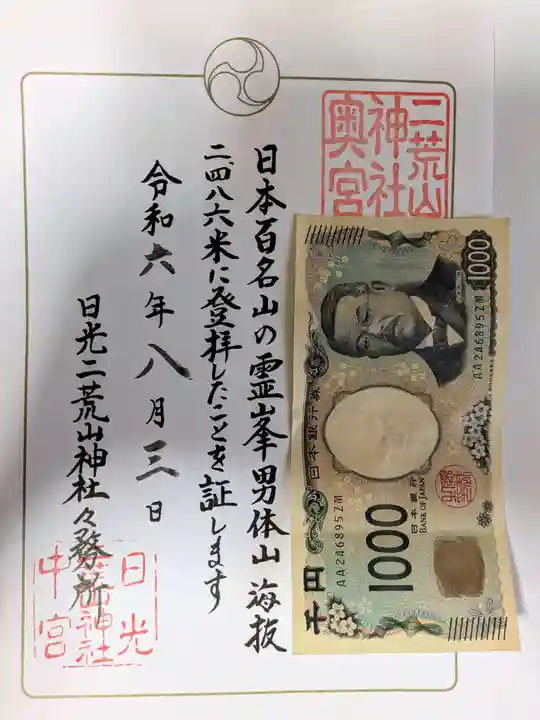 二荒山
神社
奥宮
日本百名山の霊峯男体山 海抜
二、四八六米に登拝したことを証します
令和六年八月三日
日光二荒山神社々務所
日光
荒山神社
中宮
1000
AA246895ZM
日本銀行券
日本銀行
BANK OF JAPAN
AA246895ZM
千円
1000